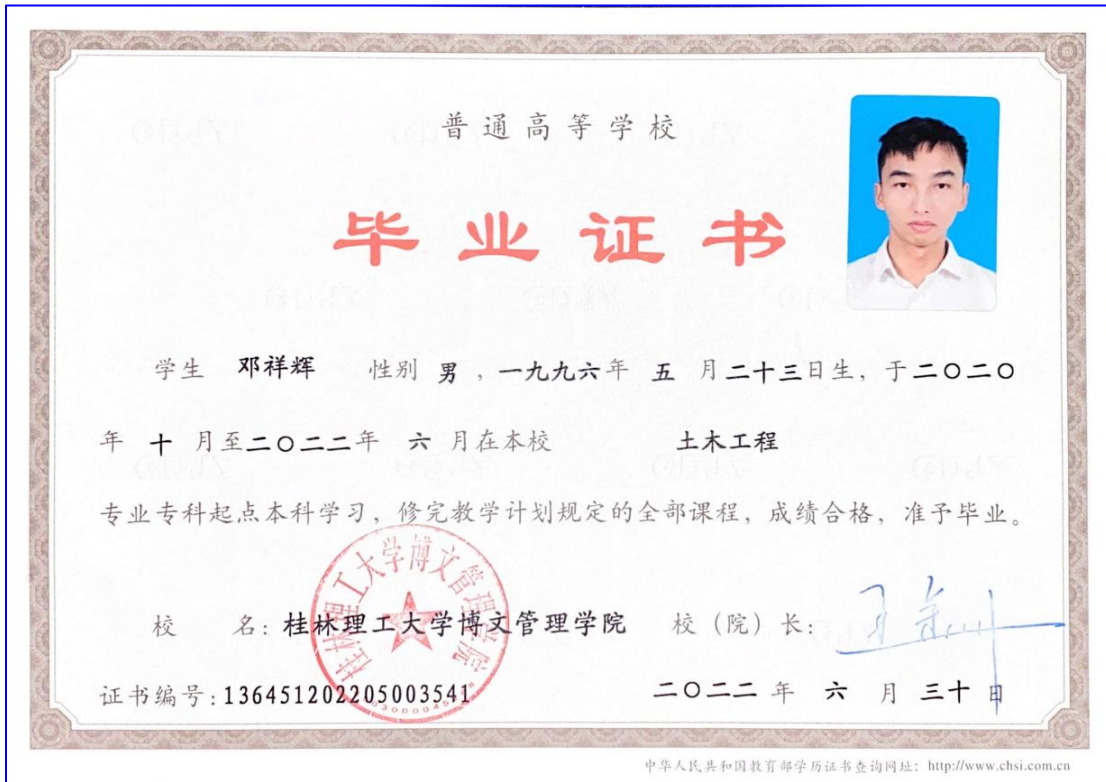 普通高等学校
毕业证书
学生 邓祥辉 性别 男 , 一九九六年 五 月二十三日生, 于二〇二〇
年 十 月至二〇二二年 六 月在本校 土木工程
专业专科起点本科学习, 修完教学计划规定的全部课程, 成绩合格, 准予毕业。
桂林理工大学博文管理学院
校 名: 桂林理工大学博文管理学院 校 (院) 长:
证书编号: 136451202205003541 二〇二二 年 六 月 三十 日
中华人民共和国教育部学历证书查询网址: http://www.chsi.com.cn